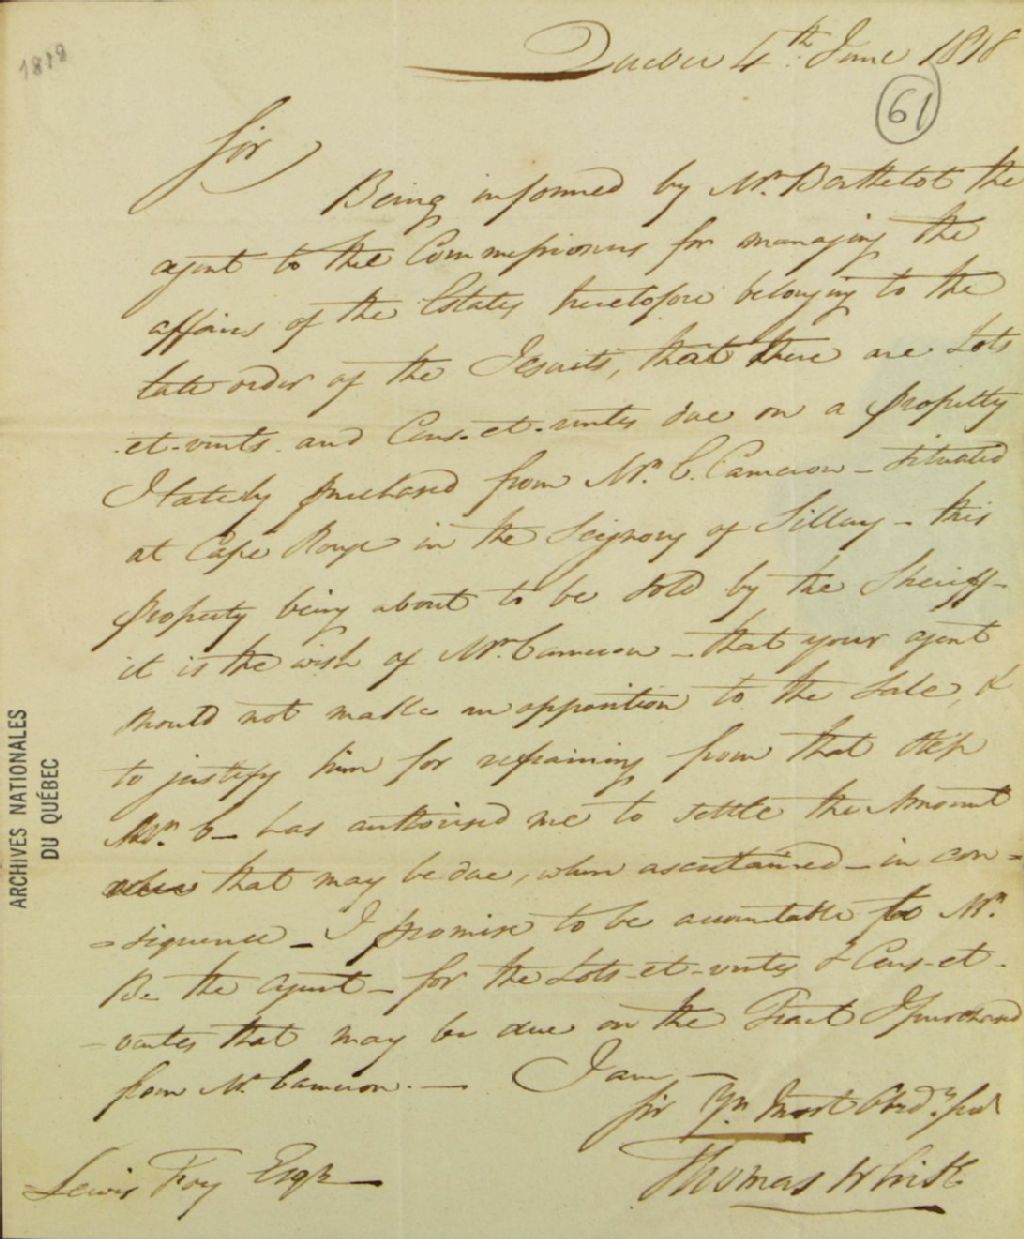 1818
Quebec 4th June 1818
61
Sir
Being informed by Mr. Berthelot the
agent to the Commissioners for managing the
affairs of the Estates heretofore belonging to the
late order of the Jesuits, that there are Lots
et-vents and Cens-et-rentes due on a property
I lately purchased from Mr. C. Cameron - situated
at Cape Rouge in the Seignory of Sillery - this
property being about to be sold by the Sheriff -
it is the wish of Mr. Cameron - that your agent
should not make an opposition to the Sale, &
to justify him for refraining from that step
Mr. C - has authorised me to settle the Amount
that may be due, when ascertained - in con=
=sequence - I promise to be accountable to Mr.
Be the agent - for the Lots-et-ventes & Cens-et-
-rentes that may be due on the Tract I purchased
from Mr. Cameron. - I am -
Sir Yr. Most Obed. Sert
Thomas White
Lewis Foy Esqr
ARCHIVES NATIONALES
DU QUÉBEC